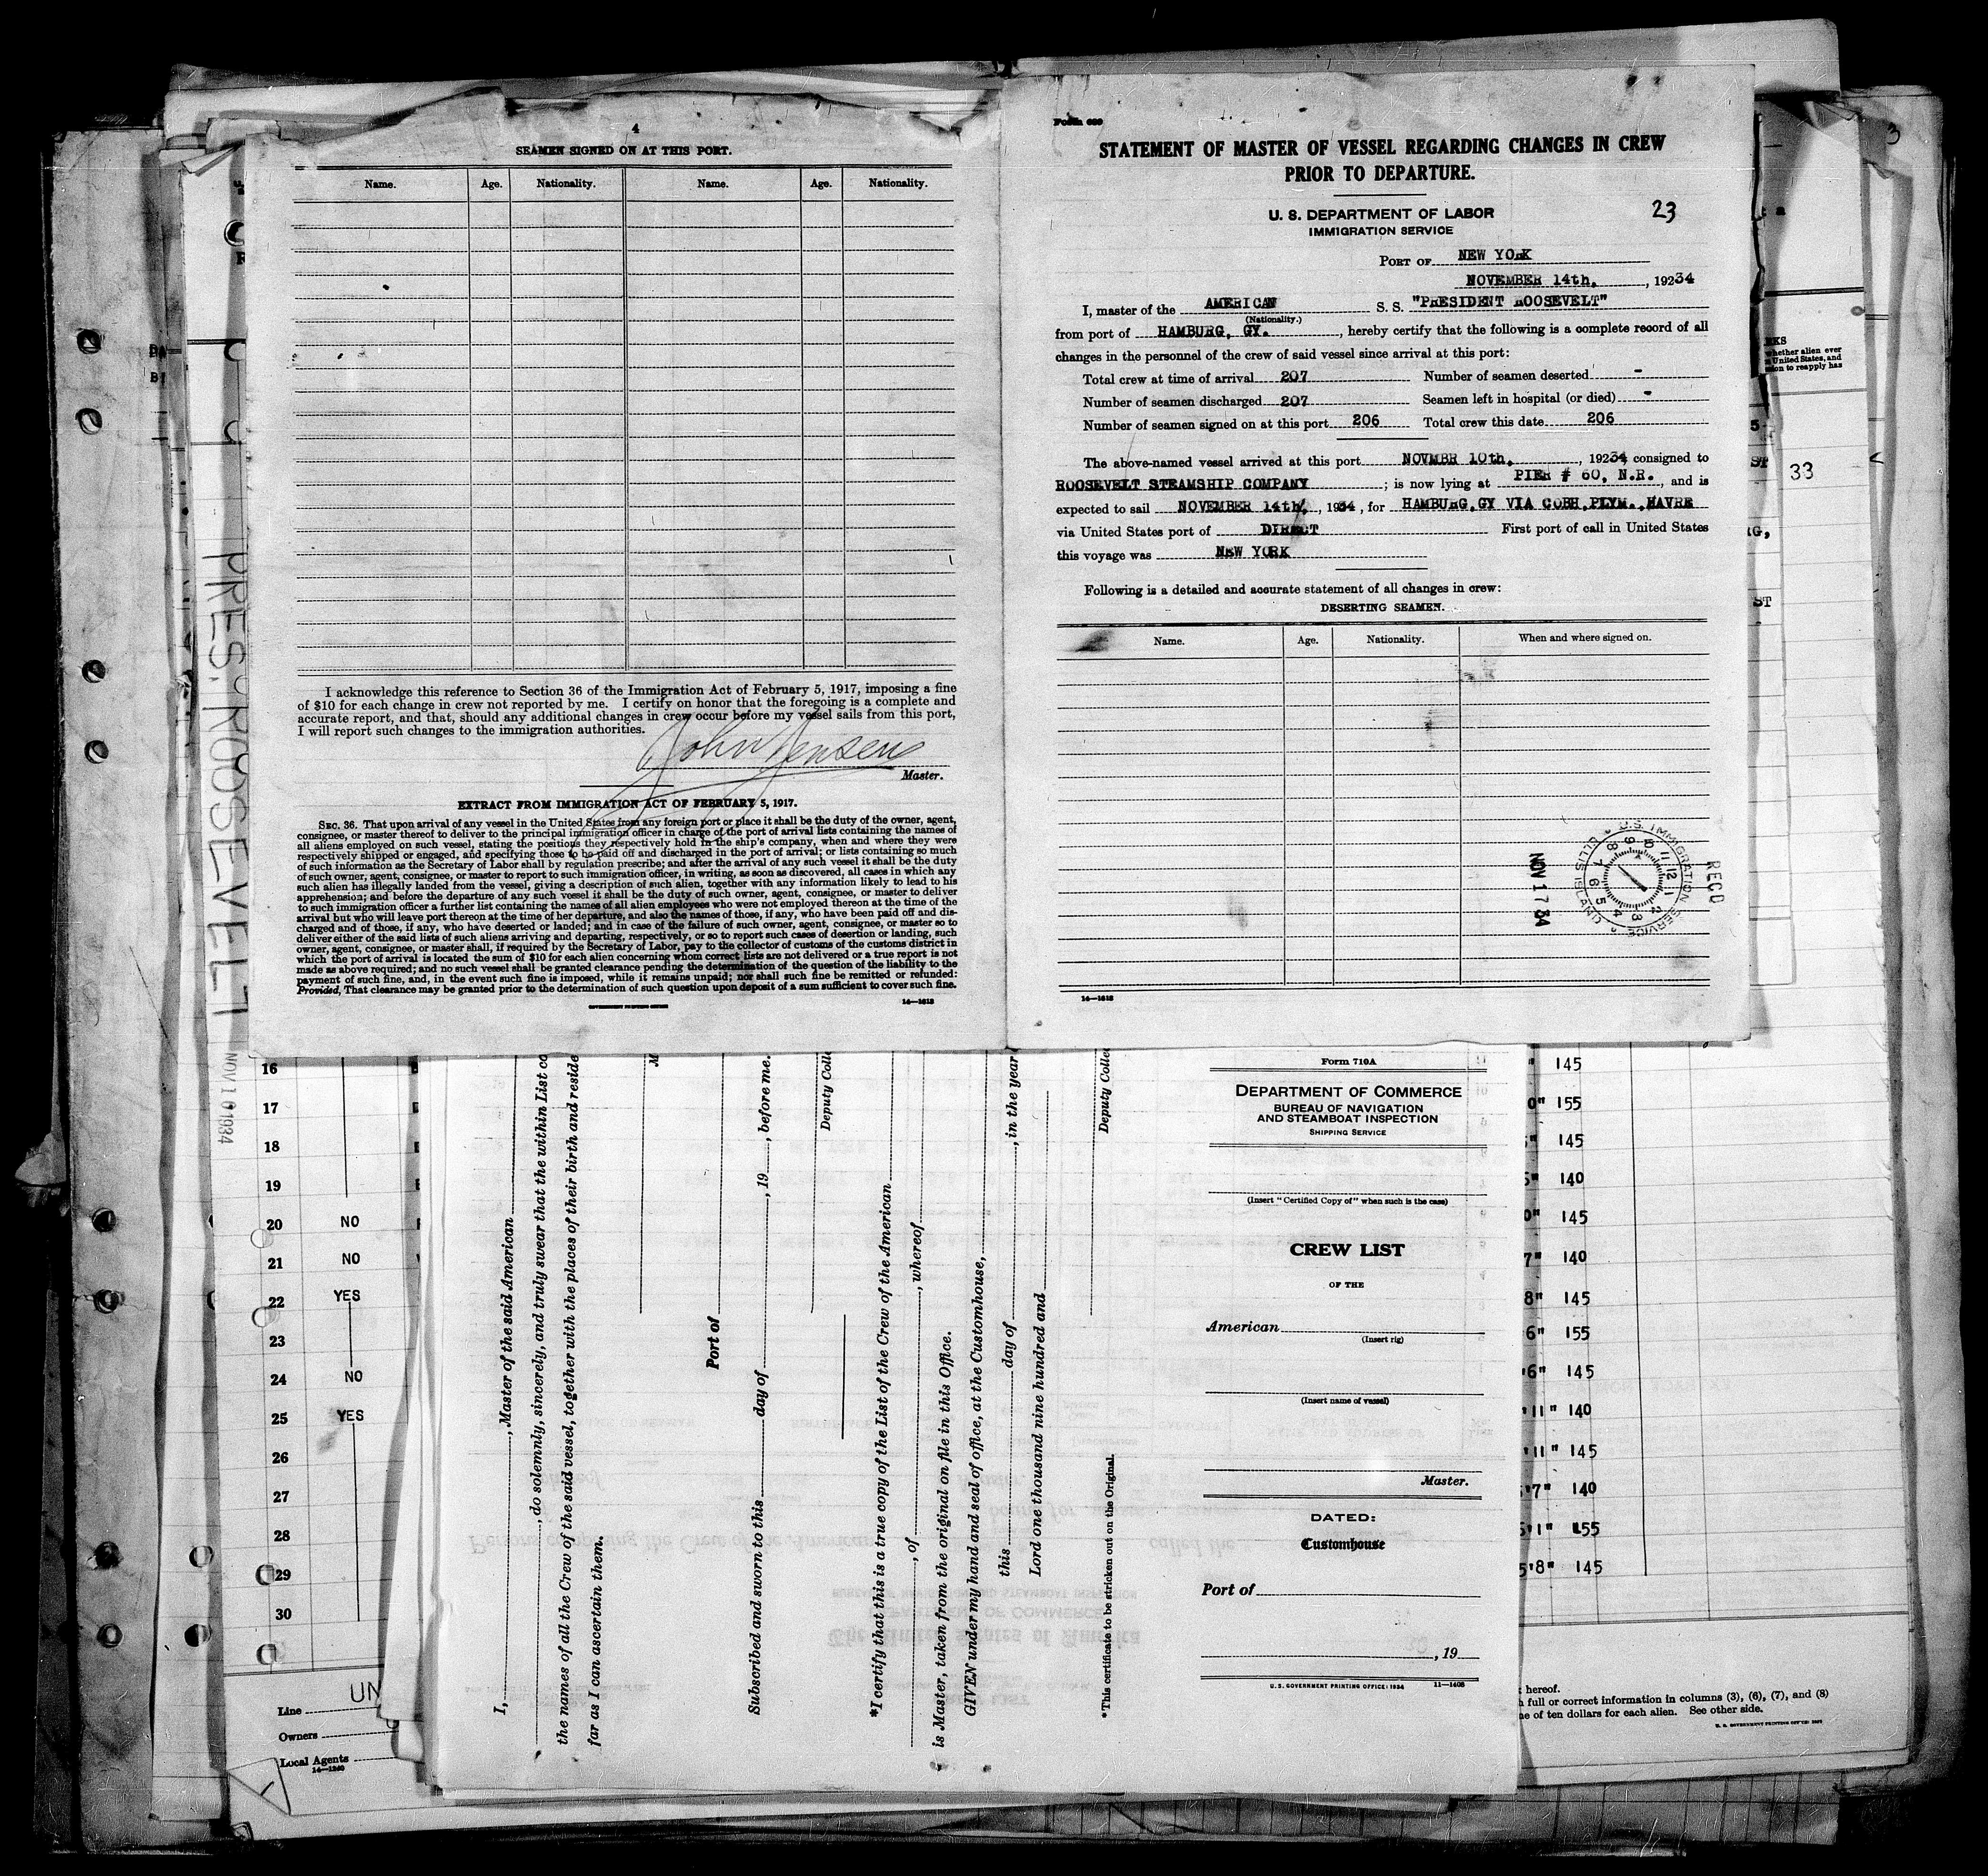 4
SEAMEN SIGNED ON AT THIS PORT.
Name. Age. Nationality. Name. Age. Nationality.
I acknowledge this reference to Section 36 of the Immigration Act of February 5, 1917, imposing a fine
of $10 for each change in crew not reported by me. I certify on honor that the foregoing is a complete and
accurate report, and that, should any additional changes in crew occur before my vessel sails from this port,
I will report such changes to the immigration authorities.
John Jensen
Master.
EXTRACT FROM IMMIGRATION ACT OF FEBRUARY 5, 1917.
SEC. 36. That upon arrival of any vessel in the United States from any foreign port or place it shall be the duty of the owner, agent,
consignee, or master thereof to deliver to the principal immigration officer in charge of the port of arrival lists containing the names of
all aliens employed on such vessel, stating the positions they respectively hold in the ship's company, when and where they were
respectively shipped or engaged, and specifying those to be paid off and discharged in the port of arrival; or lists containing so much
of such information as the Secretary of Labor shall by regulation prescribe; and after the arrival of any such vessel it shall be the duty
of such owner, agent, consignee, or master to report to such immigration officer, in writing, as soon as discovered, all cases in which any
such alien has illegally landed from the vessel, giving a description of such alien, together with any information likely to lead to his
apprehension; and before the departure of any such vessel it shall be the duty of such owner, agent, consignee, or master to deliver
to such immigration officer a further list containing the names of all alien employees who were not employed thereon at the time of the
arrival but who will leave port thereon at the time of her departure, and also the names of those, if any, who have been paid off and dis-
charged and of those, if any, who have deserted or landed; and in case of the failure of such owner, agent, consignee, or master so to
deliver either of the said lists of such aliens arriving and departing, respectively, or so to report such cases of desertion or landing, such
owner, agent, consignee, or master shall, if required by the Secretary of Labor, pay to the collector of customs of the customs district in
which the port of arrival is located the sum of $10 for each alien concerning whom correct lists are not delivered or a true report is not
made as above required; and no such vessel shall be granted clearance pending the determination of the question of the liability to the
payment of such fine, and, in the event such fine is imposed, while it remains unpaid; nor shall such fine be remitted or refunded:
Provided, That clearance may be granted prior to the determination of such question upon deposit of a sum sufficient to cover such fine.
GOVERNMENT PRINTING OFFICE 14—1613
Form 689
STATEMENT OF MASTER OF VESSEL REGARDING CHANGES IN CREW
PRIOR TO DEPARTURE.
U. S. DEPARTMENT OF LABOR
IMMIGRATION SERVICE
23
PORT OF NEW YORK
NOVEMBER 14th, , 19234
I, master of the AMERICAN S. S. "PRESIDENT ROOSEVELT"
(Nationality.)
from port of HAMBURG, GY. , hereby certify that the following is a complete record of all
changes in the personnel of the crew of said vessel since arrival at this port:
Total crew at time of arrival 207 Number of seamen deserted -
Number of seamen discharged 207 Seamen left in hospital (or died) -
Number of seamen signed on at this port 206 Total crew this date 206
The above-named vessel arrived at this port NOVMBR 10th, , 19234 consigned to
ROOSEVELT STEAMSHIP COMPANY ; is now lying at PIER # 60, N.R. , and is
expected to sail NOVEMBER 14th, , 1934 , for HAMBURG,GY VIA COBH,PLYM.,HAVRE
via United States port of DIRECT First port of call in United States
this voyage was NEW YORK
Following is a detailed and accurate statement of all changes in crew:
DESERTING SEAMEN.
Name. Age. Nationality. When and where signed on.
U.S. IMMIGRATION SERVICE
ELLIS ISLAND
NOV 17 34
REC'D
14—1613
PRES. ROOSEVELT
NOV 10 1934
16
17
18
19
20 NO
21 NO
22 YES
23
24 NO
25 YES
26
27
28
29
30
UN
Line
Owners
Local Agents
14—1240
I, , Master of the said American
, do solemnly, sincerely, and truly swear that the within List co
the names of all the Crew of the said vessel, together with the places of their birth and reside
far as I can ascertain them.
M
Port of
Subscribed and sworn to this day of , 19 , before me.
Deputy Colle
*I certify that this is a true copy of the List of the Crew of the American
, of , whereof
is Master, taken from the original on file in this Office.
GIVEN under my hand and seal of office, at the Customhouse,
this day of , in the year
Lord one thousand nine hundred and
Deputy Collec
*This certificate to be stricken out on the Original.
Form 710A
DEPARTMENT OF COMMERCE
BUREAU OF NAVIGATION
AND STEAMBOAT INSPECTION
SHIPPING SERVICE
(Insert "Certified Copy of" when such is the case)
CREW LIST
OF THE
American
(Insert rig)
(Insert name of vessel)
Master.
DATED:
Customhouse
Port of
, 19
U. S. GOVERNMENT PRINTING OFFICE: 1934 11—1408
3
RKS
whether alien ever
United States, and
sion to reapply has
5
ST 33
G,
ST
" 145
0" 155
" 145
5" 140
0" 145
7" 140
8" 145
6" 155
'6" 145
'11" 140
'11" 145
'7" 140
5'1" 155
5'8" 145
hereof.
full or correct information in columns (3), (6), (7), and (8)
ne of ten dollars for each alien. See other side.